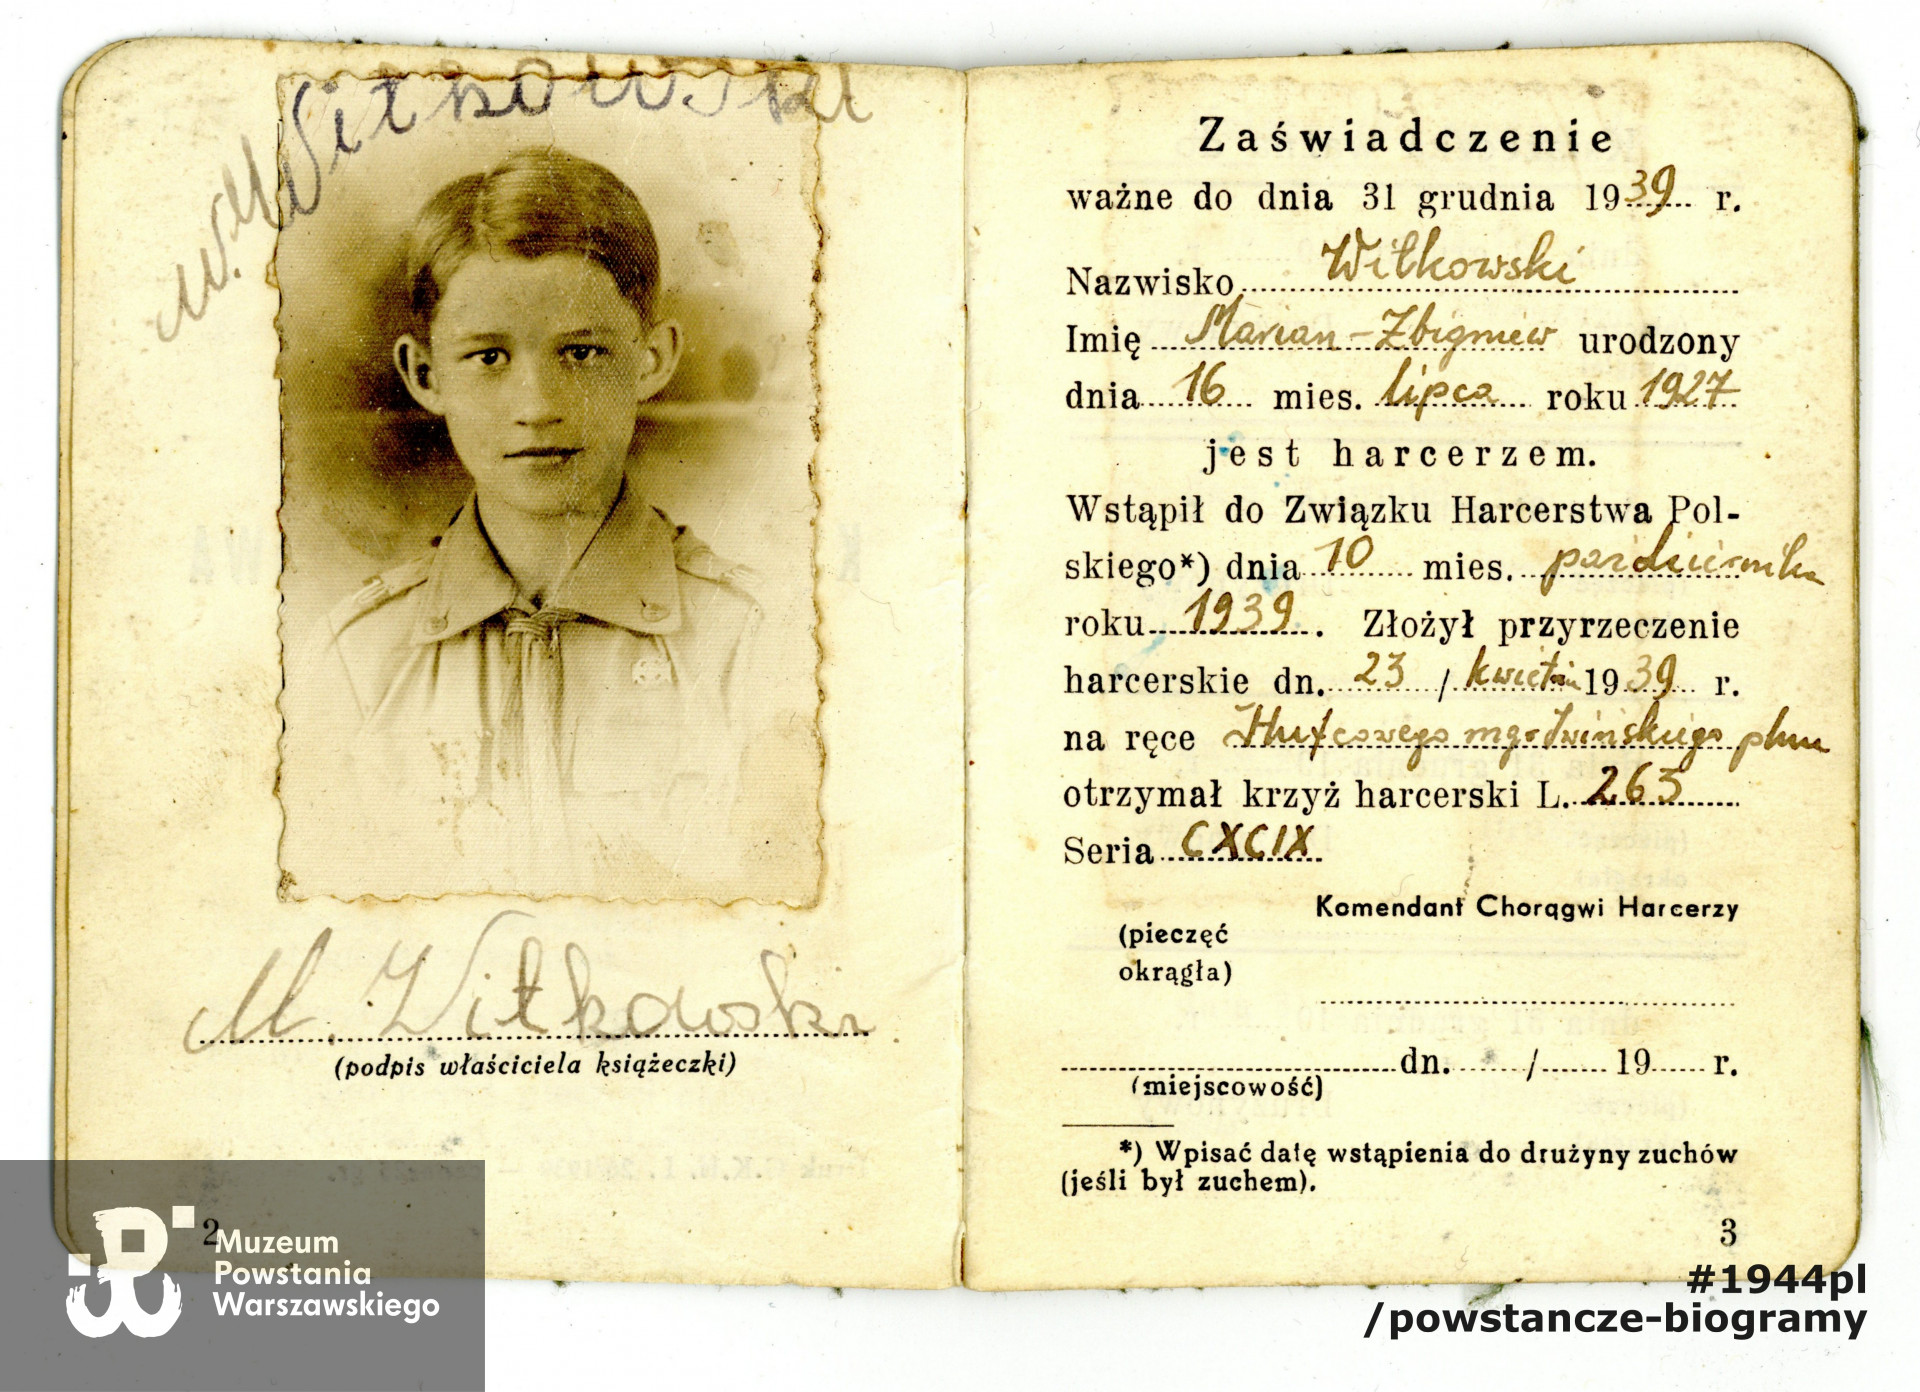 W. M. Witkowski
M. Witkowski
(podpis właściciela książeczki)
2
Zaświadczenie
ważne do dnia 31 grudnia 1939 r.
Nazwisko Witkowski
Imię Marian-Zbigniew urodzony
dnia 16 mies. lipca roku 1927
jest harcerzem.
Wstąpił do Związku Harcerstwa Pol-
skiego*) dnia 10 mies. października
roku 1939. Złożył przyrzeczenie
harcerskie dn. 23 / kwietnia 1939 r.
na ręce Hufcowego
otrzymał krzyż harcerski L. 263
Seria CXCIX
Komendant Chorągwi Harcerzy
(pieczęć
okrągła)
dn. / 19 r.
(miejscowość)
*) Wpisać datę wstąpienia do drużyny zuchów
(jeśli był zuchem).
3
Muzeum
Powstania
Warszawskiego
#1944pl
/powstancze-biogramy